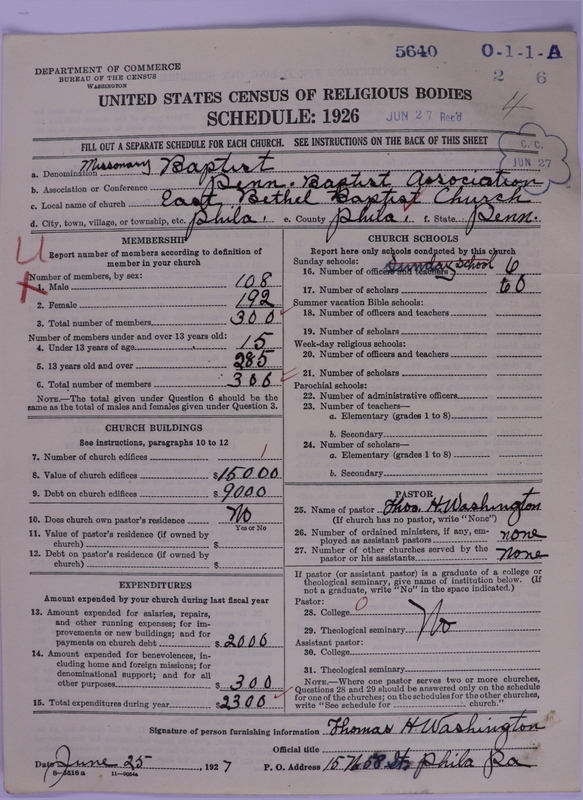 5640 0-1-1-A
2 6
DEPARTMENT OF COMMERCE
BUREAU OF THE CENSUS
WASHINGTON
UNITED STATES CENSUS OF RELIGIOUS BODIES
SCHEDULE: 1926
JUN 27 Rec'd
4
FILL OUT A SEPARATE SCHEDULE FOR EACH CHURCH. SEE INSTRUCTIONS ON THE BACK OF THIS SHEET
C. C.
JUN 27
a. Denomination Missionary Baptist
b. Association or Conference Penn. Baptist Association
c. Local name of church East Bethel Baptist Church
d. City, town, village, or township, etc. Phila. e. County Phila. f. State Penn.
MEMBERSHIP
Report number of members according to definition of
member in your church
Number of members, by sex:
1. Male 108
2. Female 192
3. Total number of members 300
Number of members under and over 13 years old:
4. Under 13 years of age 15
5. 13 years old and over 285
6. Total number of members 300
NOTE.—The total given under Question 6 should be the
same as the total of males and females given under Question 3.
CHURCH BUILDINGS
See instructions, paragraphs 10 to 12
7. Number of church edifices 1
8. Value of church edifices $15000
9. Debt on church edifices $9000
10. Does church own pastor's residence No
Yes or No
11. Value of pastor's residence (if owned by
church) $
12. Debt on pastor's residence (if owned by
church) $
EXPENDITURES
Amount expended by your church during last fiscal year
13. Amount expended for salaries, repairs,
and other running expenses; for im-
provements or new buildings; and for
payments on church debt $2000
14. Amount expended for benevolences, in-
cluding home and foreign missions; for
denominational support; and for all
other purposes $300
15. Total expenditures during year $2300
CHURCH SCHOOLS
Report here only schools conducted by this church
Sunday schools: Sunday School
16. Number of officers and teachers 6
17. Number of scholars 60
Summer vacation Bible schools:
18. Number of officers and teachers
19. Number of scholars
Week-day religious schools:
20. Number of officers and teachers
21. Number of scholars
Parochial schools:
22. Number of administrative officers
23. Number of teachers—
a. Elementary (grades 1 to 8)
b. Secondary
24. Number of scholars—
a. Elementary (grades 1 to 8)
b. Secondary
PASTOR
25. Name of pastor Thos. H. Washington
(If church has no pastor, write "None")
26. Number of ordained ministers, if any, em-
ployed as assistant pastors none
27. Number of other churches served by the
pastor or his assistants none
If pastor (or assistant pastor) is a graduate of a college or
theological seminary, give name of institution below. (If
not a graduate, write "No" in the space indicated.)
Pastor:
28. College 0
29. Theological seminary No
Assistant pastor:
30. College
31. Theological seminary
NOTE.—Where one pastor serves two or more churches,
Questions 28 and 29 should be answered only on the schedule
for one of the churches; on the schedules for the other churches,
write "See schedule for church."
Signature of person furnishing information Thomas H Washington
Official title
Date June 25, 1927 P. O. Address Phila Pa
11—9054a